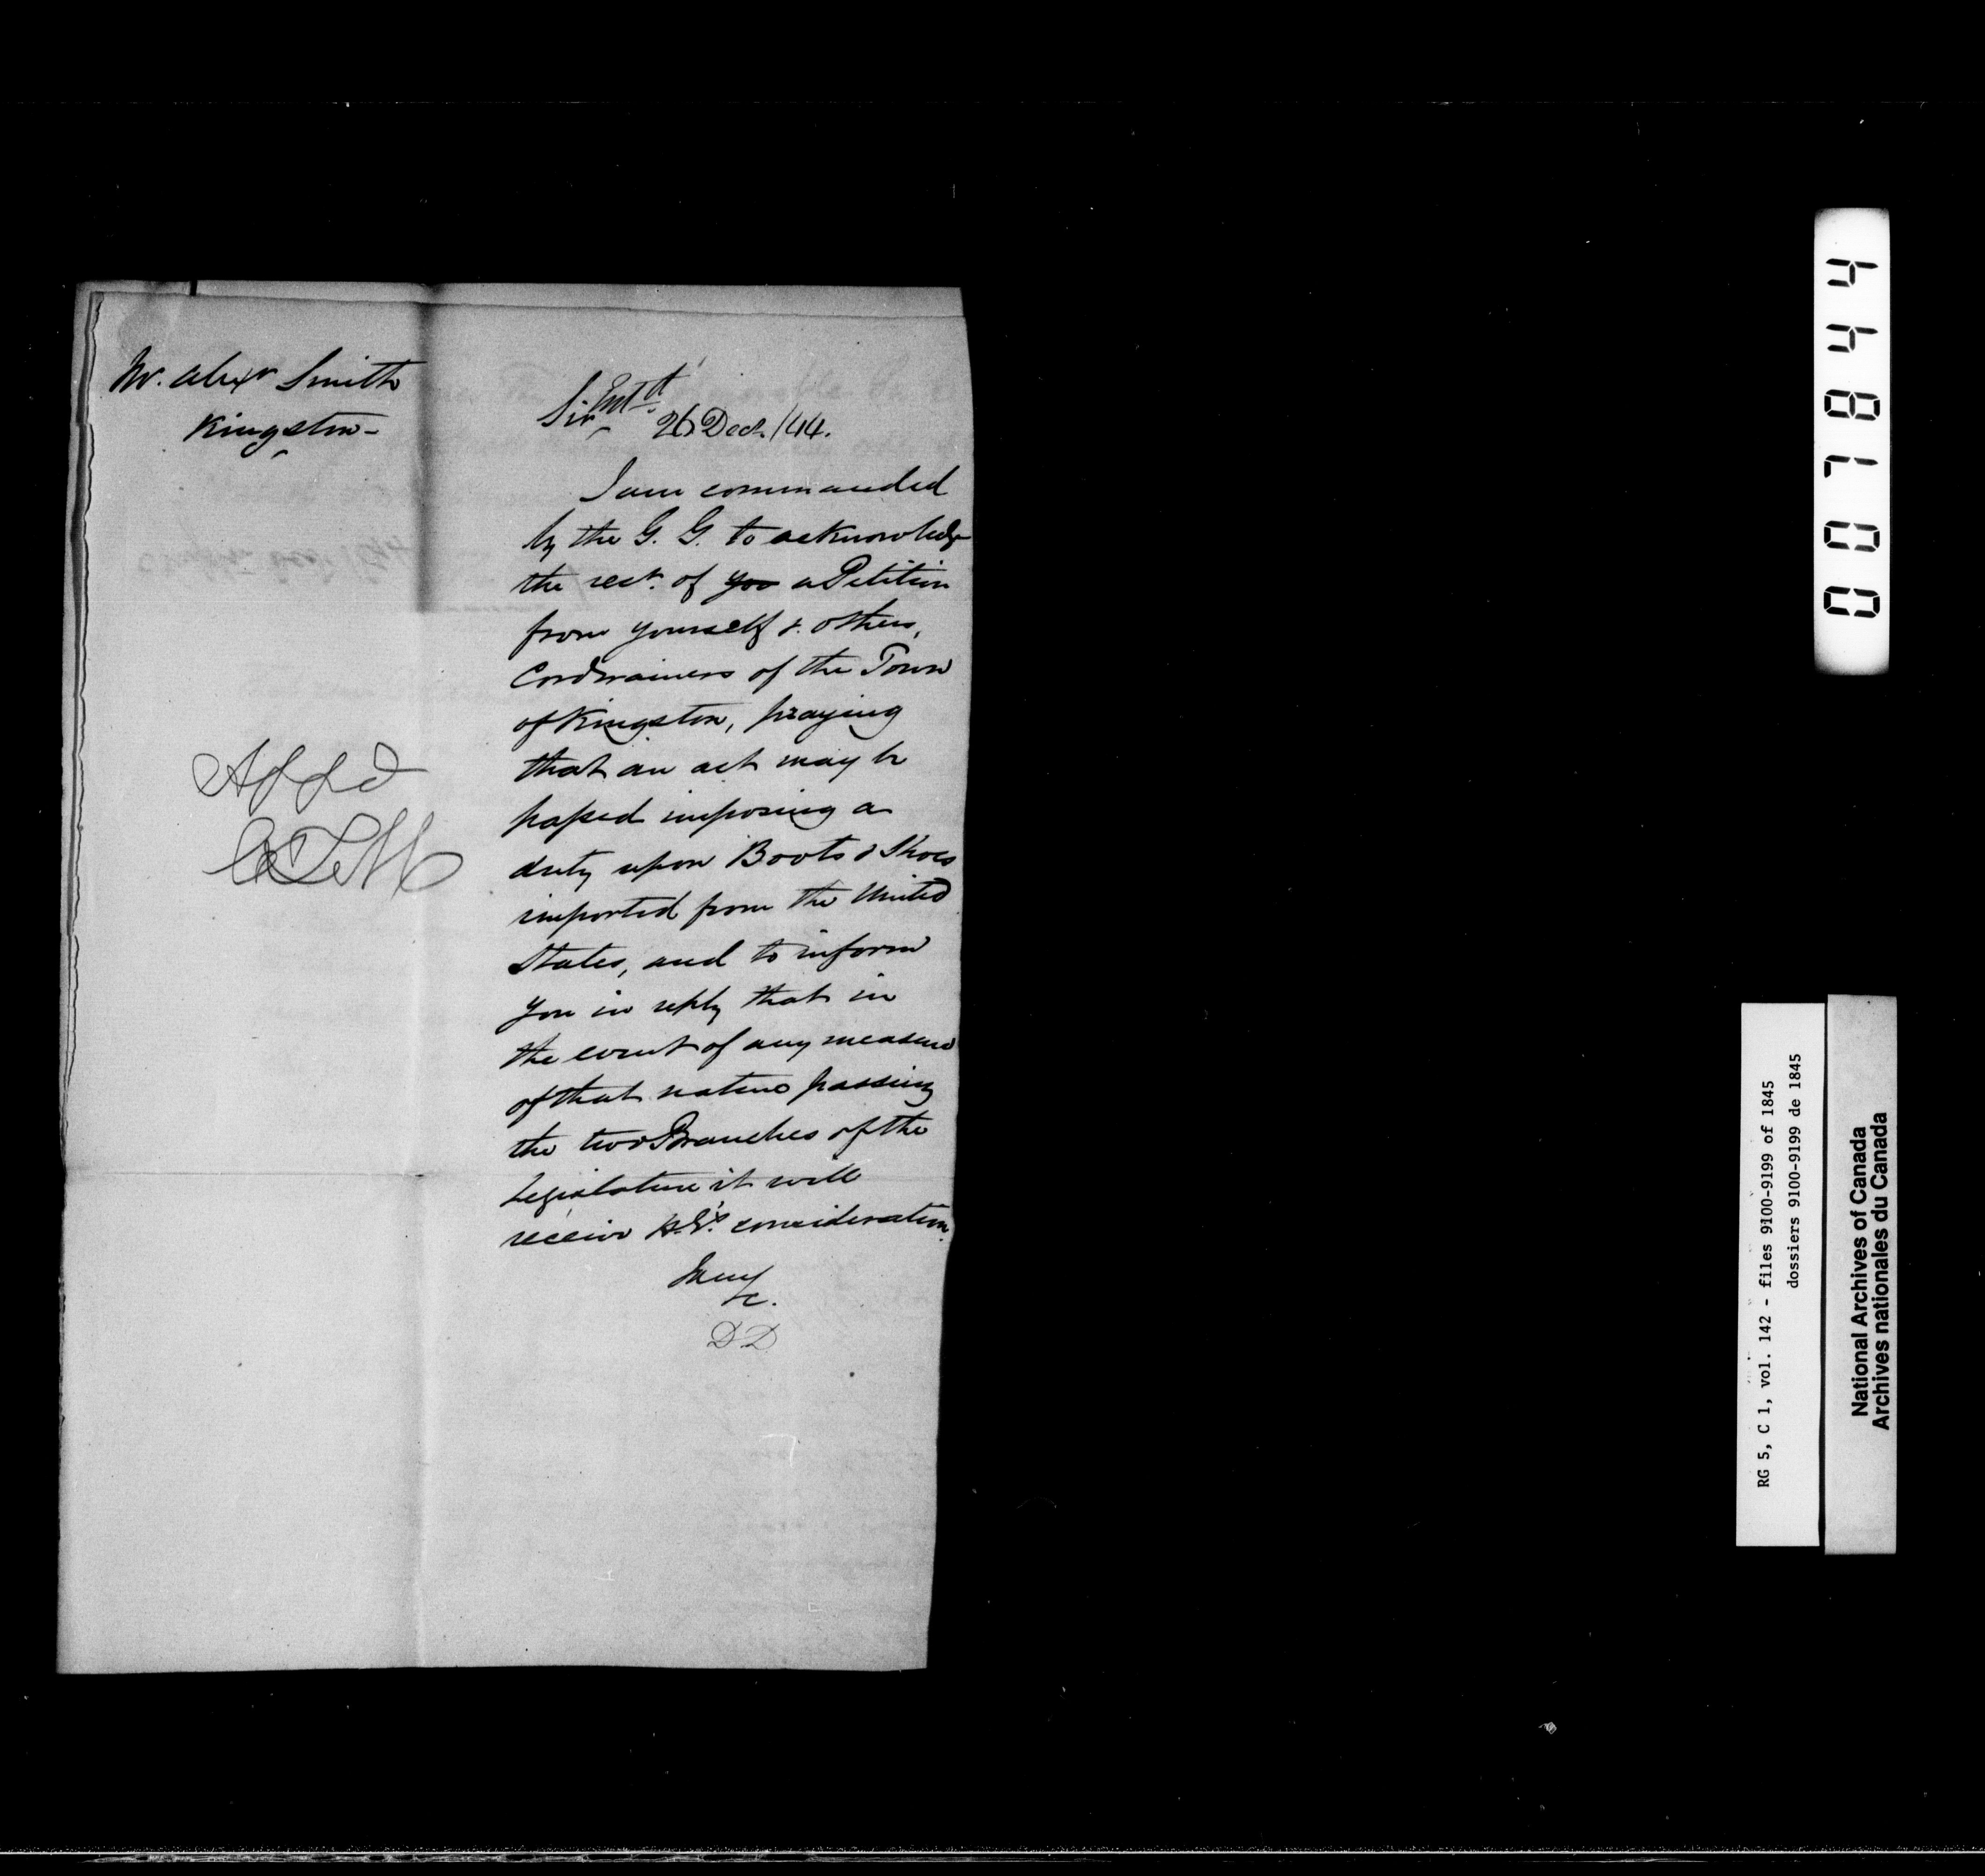 Mr. Alexr Smith
Kingston-
Appd
Entd
Sir 26 Decr. /44.
I am commanded
by the G. G. to acknowledge
the rect. of you a Petition
from yourself & others,
Cordwainers of the Town
of Kingston, praying
that an act may be
passed imposing a
duty upon Boots & Shoes
imported from the United
States, and to inform
you in reply that in
the event of any measure
of that nature passing
the two Branches of the
Legislature it will
receive H.E's. consideration.
I hav
&c.
D D
007844
RG 5, C 1, vol. 142 - files 9100-9199 of 1845
dossiers 9100-9199 de 1845
National Archives of Canada
Archives nationales du Canada